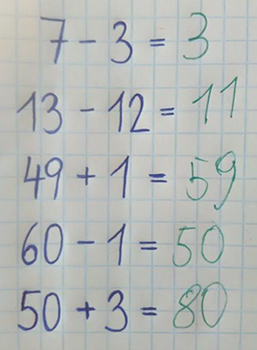 7 - 3 = 3
13 - 12 = 11
49 + 1 = 59
60 - 1 = 50
50 + 3 = 80